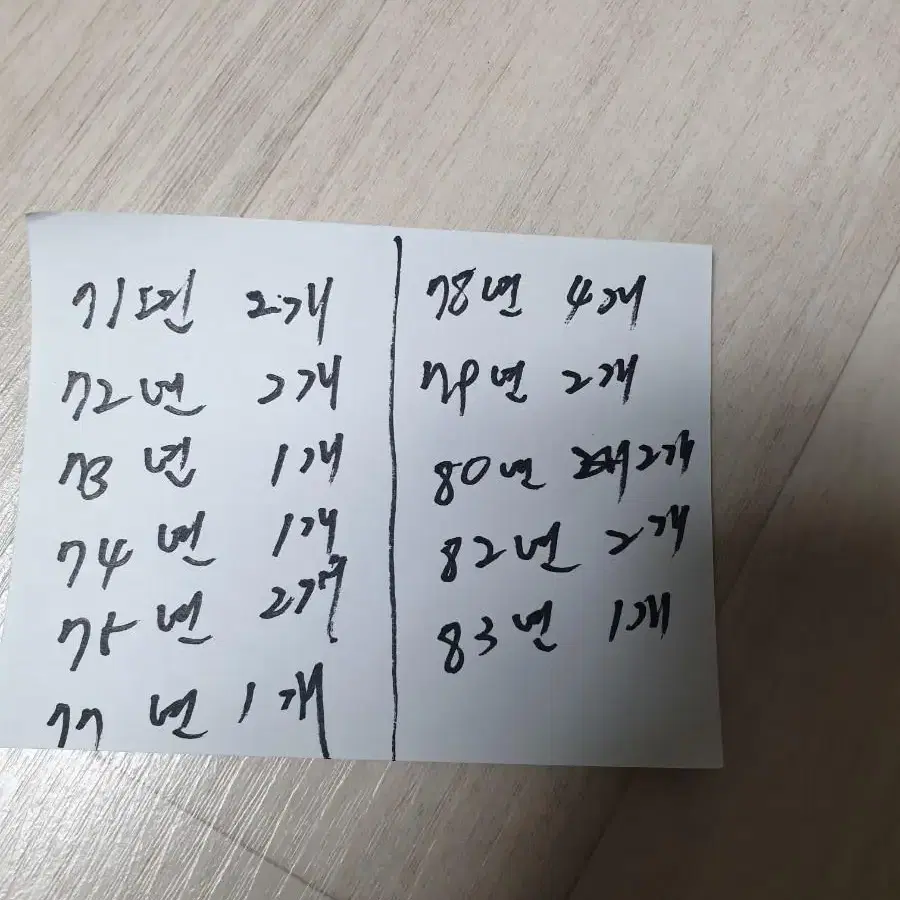 71년 2개
72년 2개
73년 1개
74년 1개
75년 2개
77년 1개
78년 4개
79년 2개
80년 2개
82년 2개
83년 1개